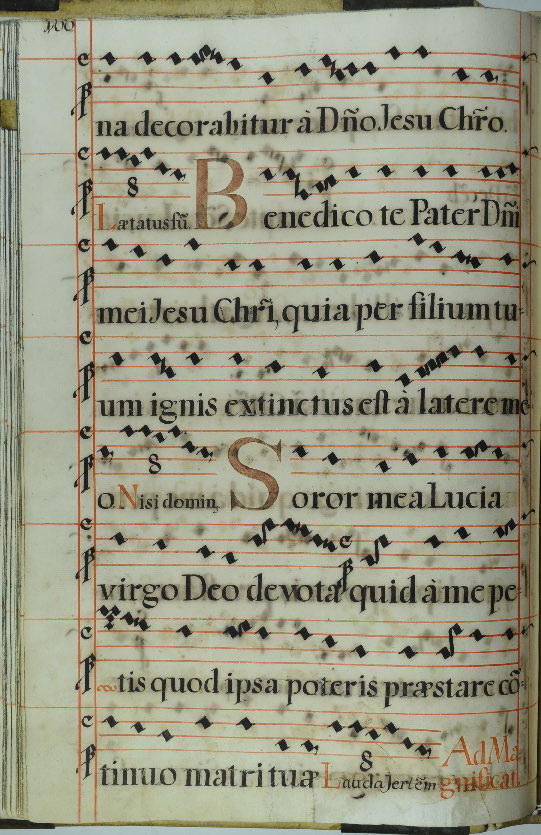 na decorabitur à Dño Jesu Chr̃o.
8
Lætatus sũ. Benedico te Pater Dñi
mei Jesu Chr̃i, quia per filium tu-
um ignis extinctus est à latere me-
8
o Nisi domin, Soror mea Lucia
virgo Deo devota quid à me pe-
tis quod ipsa poteris præstare cõ-
8
tinuo matri tuæ Lauda Jerl̃em Ad Ma-
gnificat.